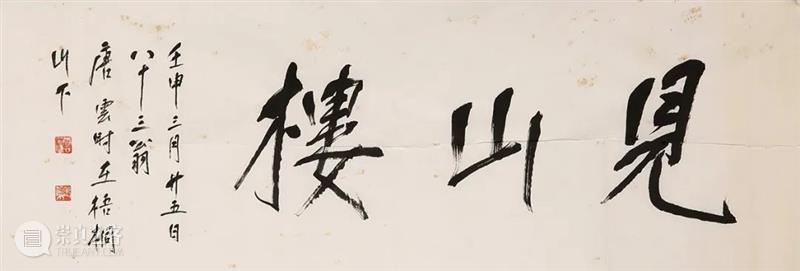 見山樓
壬申三月廿五日
八十三翁
唐雲時在梧桐
山下
崇真艺客
TRUEART.COM